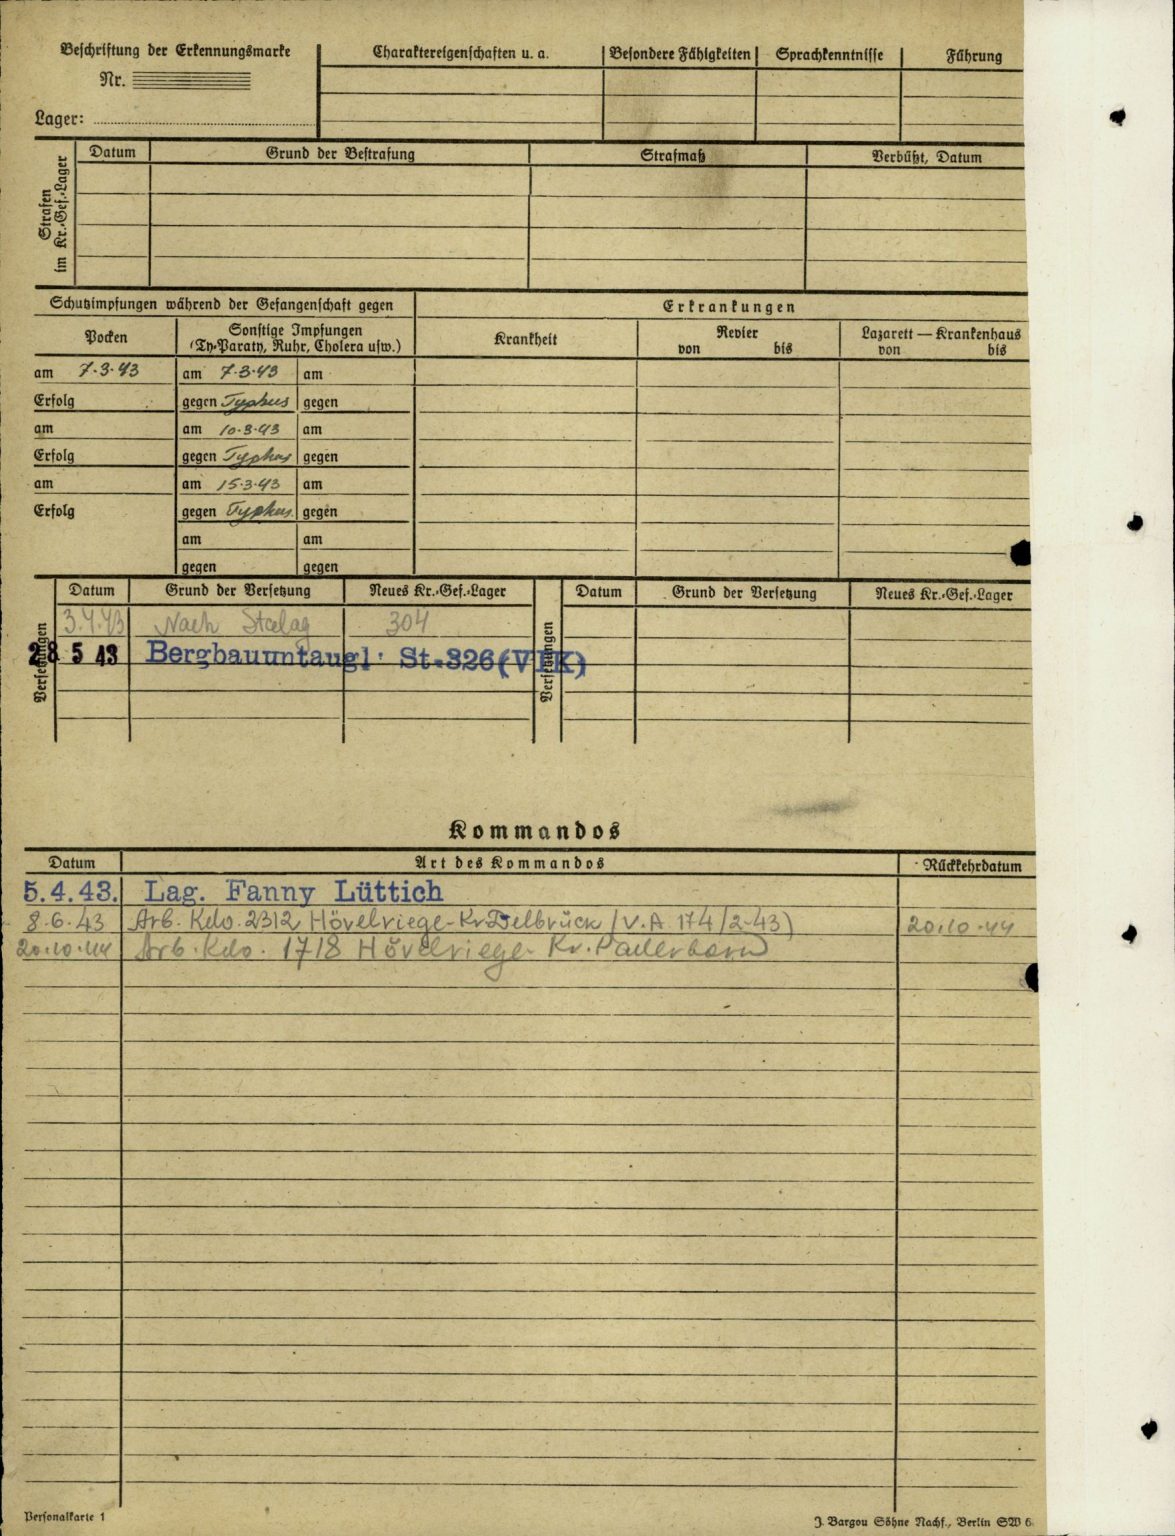 Beschriftung der Erkennungsmarke
Nr.
Lager:
Charaktereigenschaften u. a. Besondere Fähigkeiten Sprachkenntnisse Führung
Strafen im Kr.-Gef.-Lager
Datum Grund der Bestrafung Strafmaß Verbüßt, Datum
Schutzimpfungen während der Gefangenschaft gegen Erkrankungen
Pocken Sonstige Impfungen Krankheit Revier Lazarett — Krankenhaus
(Ty-Paraty, Ruhr, Cholera usw.) von bis von bis
am 7.3.43 am 7.3.43 am
Erfolg gegen Typhus gegen
am am 10.3.43 am
Erfolg gegen Typhus gegen
am am 15.3.43 am
Erfolg gegen Typhus gegen
am am
gegen gegen
Versetzungen Datum Grund der Versetzung Neues Kr.-Gef.-Lager Versetzungen Datum Grund der Versetzung Neues Kr.-Gef.-Lager
3.4.43 Nach Stalag 304
28 5 43 Bergbauuntaugl. St.326(VIK)
Kommandos
Datum Art des Kommandos Rückkehrdatum
5.4.43. Lag. Fanny Lüttich
8.6.43 Arb. Kdo. 2312 Hövelriege-Kr Delbrück (V.A 174/2-43) 20.10.44
20.10.44 Arb. Kdo. 1718 Hövelriege- Kr. Paderborn
Personalkarte 1
J. Bargou Söhne Nachf., Berlin SW 6